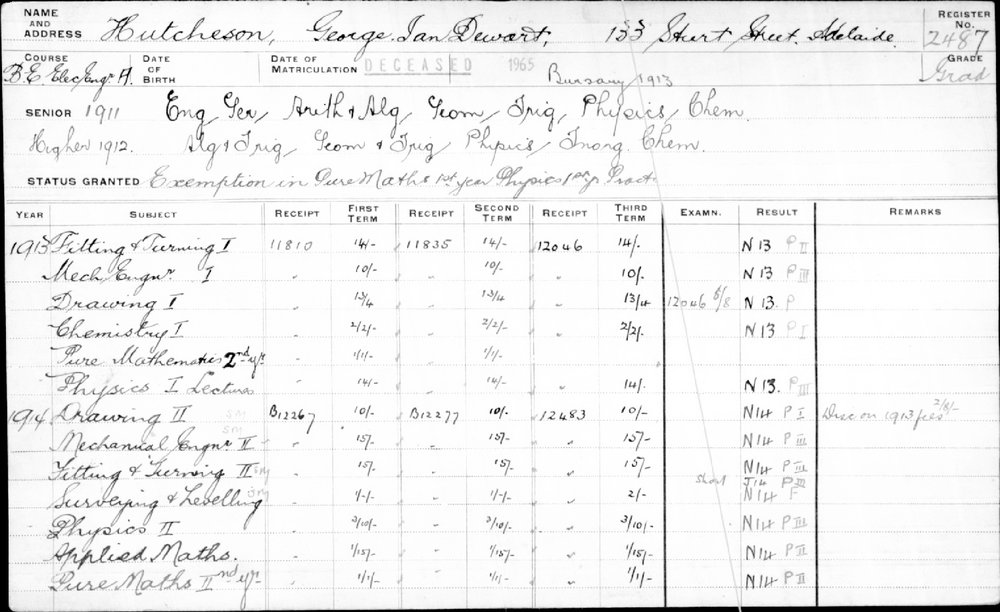 NAME AND ADDRESS Hutcheson, George Ian Dewart, 133 Sturt Street. Adelaide. REGISTER No. 2487
COURSE B.E. Elec. Engr. A. DATE OF BIRTH DATE OF MATRICULATION DECEASED 1965 Bursary 1913 GRADE Grad
SENIOR 1911 Eng, Ger, Arith & Alg, Geom, Trig, Physics, Chem.
Higher 1912. Alg & Trig, Geom & Trig, Physics, Inorg. Chem.
STATUS GRANTED Exemption in Pure Maths 1st year Physics 1st yr Pract.
YEAR SUBJECT RECEIPT FIRST TERM RECEIPT SECOND TERM RECEIPT THIRD TERM EXAMN. RESULT REMARKS
1913 Fitting & Turning I 11810 14/- 11835 14/- 12046 14/- N 13 P II
Mech. Engnr. I " 10/- " 10/- " 10/- N 13 P III
Drawing I " 13/4 " 13/4 " 13/4 12046 N 13. P
Chemistry I " 2/2/- " 2/2/- " 2/2/- N 13 P I
Pure Mathematics 2nd yr. " 1/1/- " 1/1/-
Physics I Lectures " 14/- " 14/- " 14/- N 13. P III
1914 Drawing II SM B12267 10/- B12277 10/- 12483 10/- N14 P I Disc on 1913 fees 2/8/-
Mechanical Engnr. II SM " 15/- " 15/- " 15/- N14 P III
Fitting & Turning II SM " 15/- " 15/- " 15/- N14 P III
Surveying & Levelling SM " 1/-/- " 1/-/- " 2/- Short J14 P III N14 F
Physics II " 3/10/- " 3/10/- " 3/10/- N14 P III
Applied Maths. " 1/15/- " 1/15/- " 1/15/- N14 P II
Pure Maths II nd yr. " 1/1/- " 1/1/- " 1/1/- N14 P II